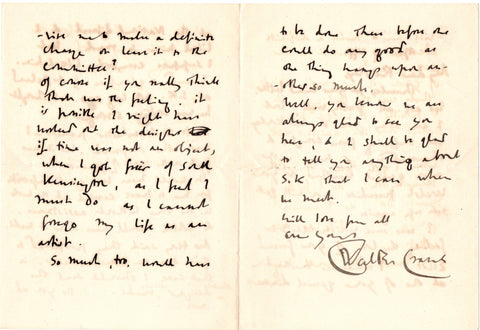 -vise me to make a definite
change or leave it to the
committee?
of course if you really think
that was the feeling, it
is possible I might have
worked out the designs
if time was not an object,
when I got free of South
Kensington, as I feel I
must do as I cannot
forego my life as an
artist.
So much, too, would have
to be done there before one
could do any good as
one thing hangs upon an-
-other so much.
Well, you know we are
always glad to see you
here, & I shall be glad
to tell you anything about
S.K that I can when
we meet.
With love from all
ever yours
Walter Crane